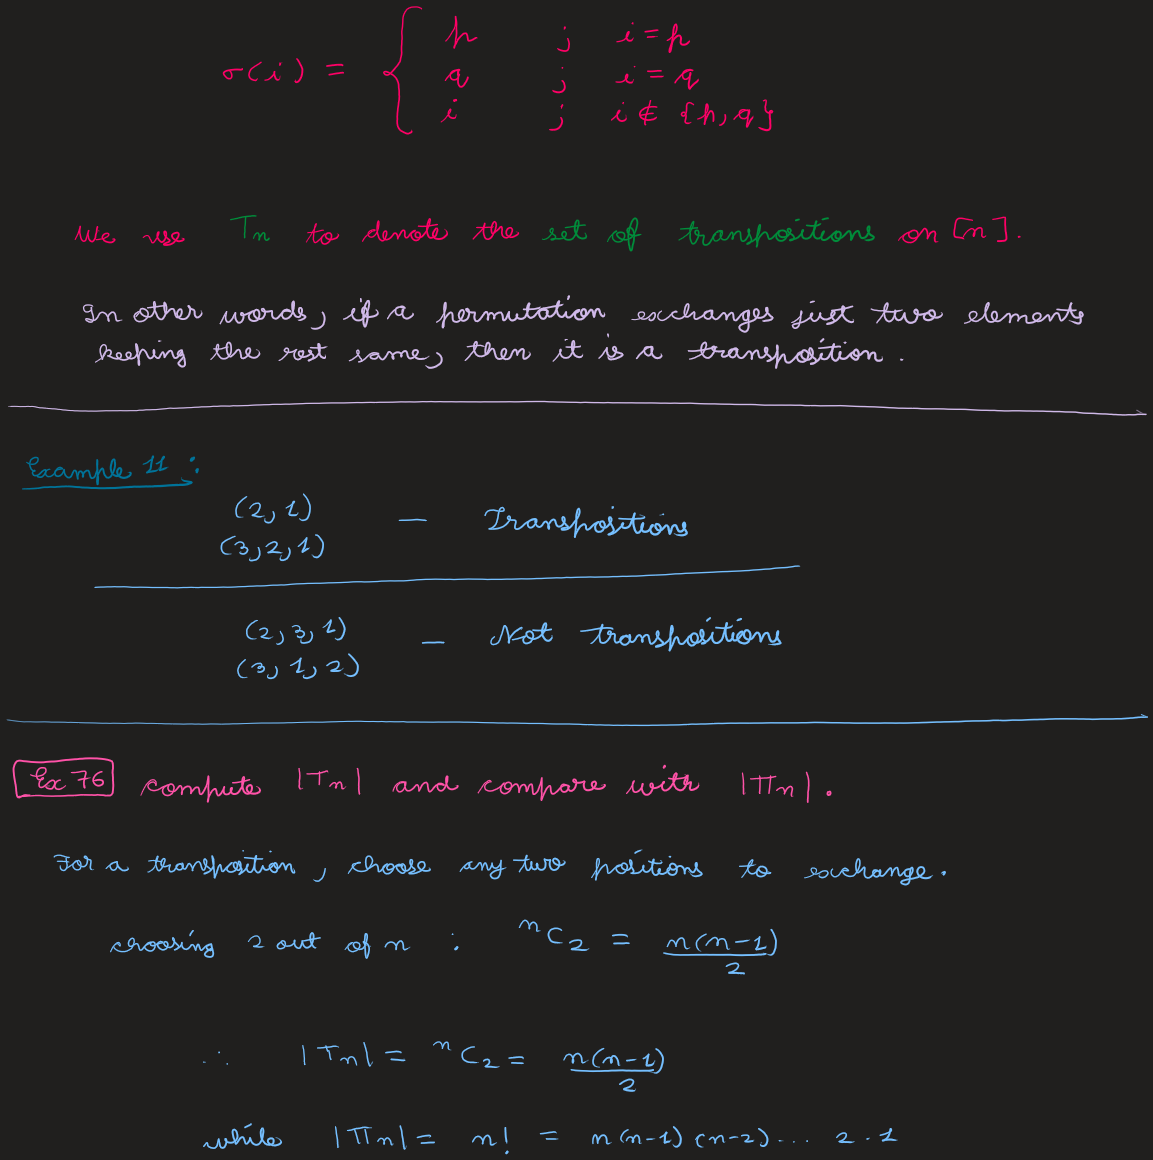 σ(i) = { p ; i = p
q ; i = q
i ; i ∉ {p, q}
We use Tn to denote the set of transpositions on [n].
In other words, if a permutation exchanges just two elements
keeping the rest same, then it is a transposition.
Example 11 :
(2, 1)
(3, 2, 1) — Transpositions
(2, 3, 1)
(3, 1, 2) — Not transpositions
Ex 76 compute |Tn| and compare with |Πn|.
For a transposition, choose any two positions to exchange.
choosing 2 out of n : ⁿC₂ = n(n-1)/2
∴ |Tn| = ⁿC₂ = n(n-1)/2
while |Πn| = n! = n(n-1)(n-2)... 2.1